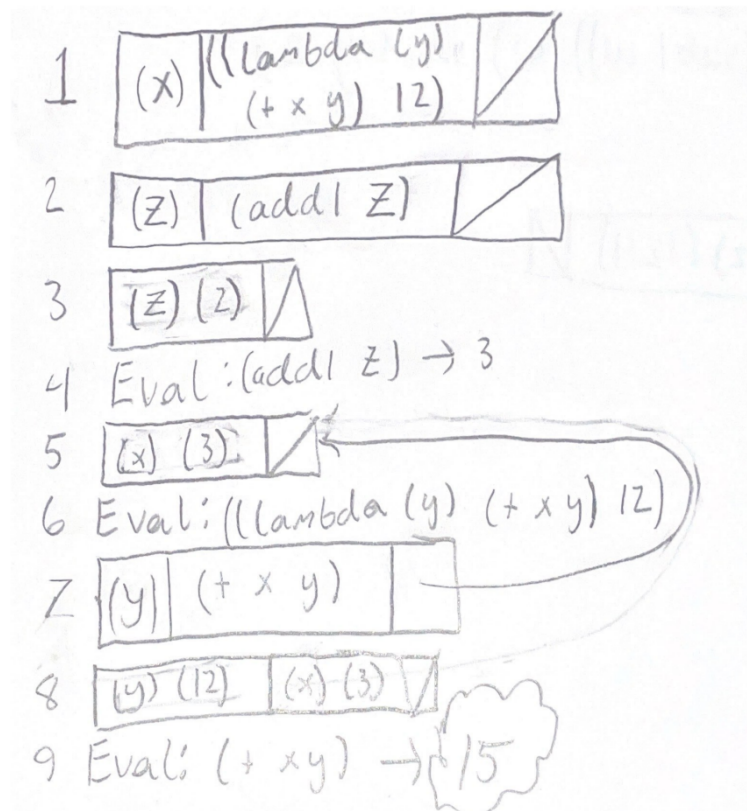 1 (x) ((lambda (y)
(+ x y) 12)
2 (z) (add1 z)
3 (z) (2)
4 Eval: (add1 z) → 3
5 (x) (3)
6 Eval: ((lambda (y) (+ x y) 12)
7 (y) (+ x y)
8 (y) (12) (x) (3)
9 Eval: (+ x y) → 15